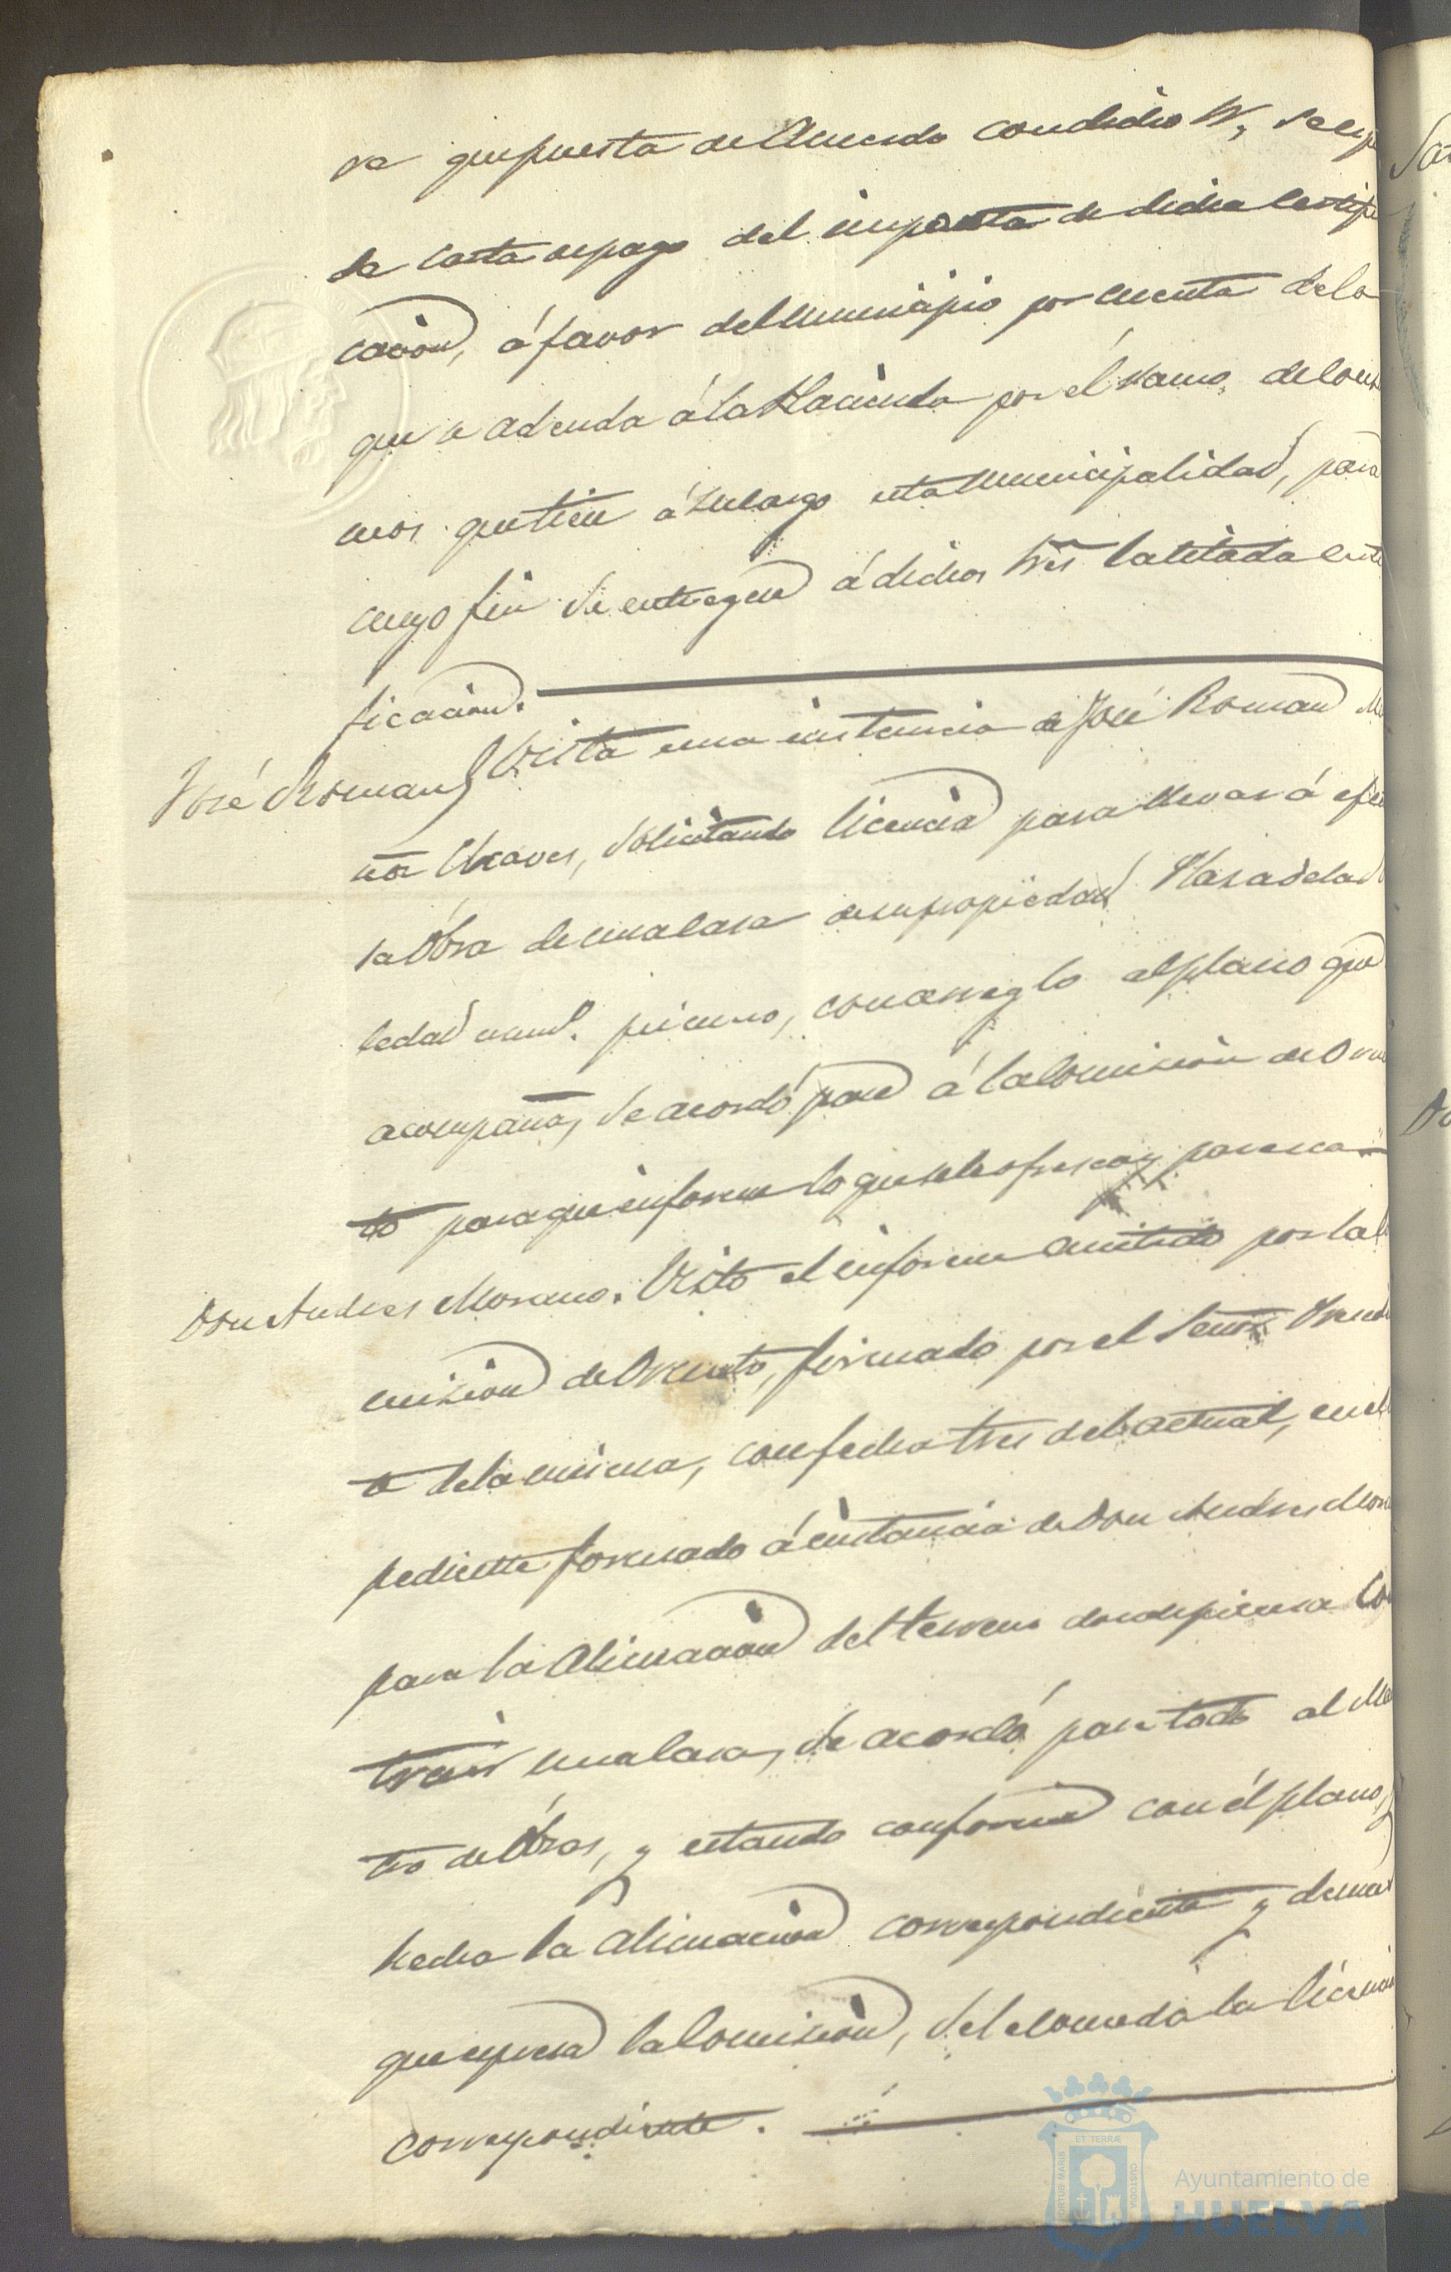 ra que puesta de Acuerdo con dichos Sr, se expi
da carta de pago del importe de dicha Certifi
cación, á favor del Municipio por cuenta de lo
que se adeuda á la Hacienda por el ramo, de Consu
mos que tiene á su cargo esta Municipalidad, para
cuyo fin se entregue á dichos Sres la citada Certi
ficación.
José Roman
Vista una instancia de José Roman Me
nor Chaves, solicitando licencia para llevar á efec
to la Obra de una Casa de su propiedad Plaza de la
ledad num.º primero, con arreglo al plano que
acompaña, se acordó pase á la Comisión de Orna
to para que informe lo que se le ofresca y paresca
Don Andres Moreno.
Visto el informe emitido por la Co
mision de Ornato, firmado por el Señor
de la misma, con fecha tres del actual, en el
pediente formado á instancia de Don Andres More
para la Alineación del terreno donde piensa Cons
truir una Casa, se acordó pase todo al Maes
tro de Obras, y estando conforme con él plano, y
hecha la alineacion correspondiente y demas
que espresa la Comisión, se le conceda la licencia
correspondiente.
PORTUS MARIS
ET TERRAE
CUSTODIA
Ayuntamiento de
HUELVA